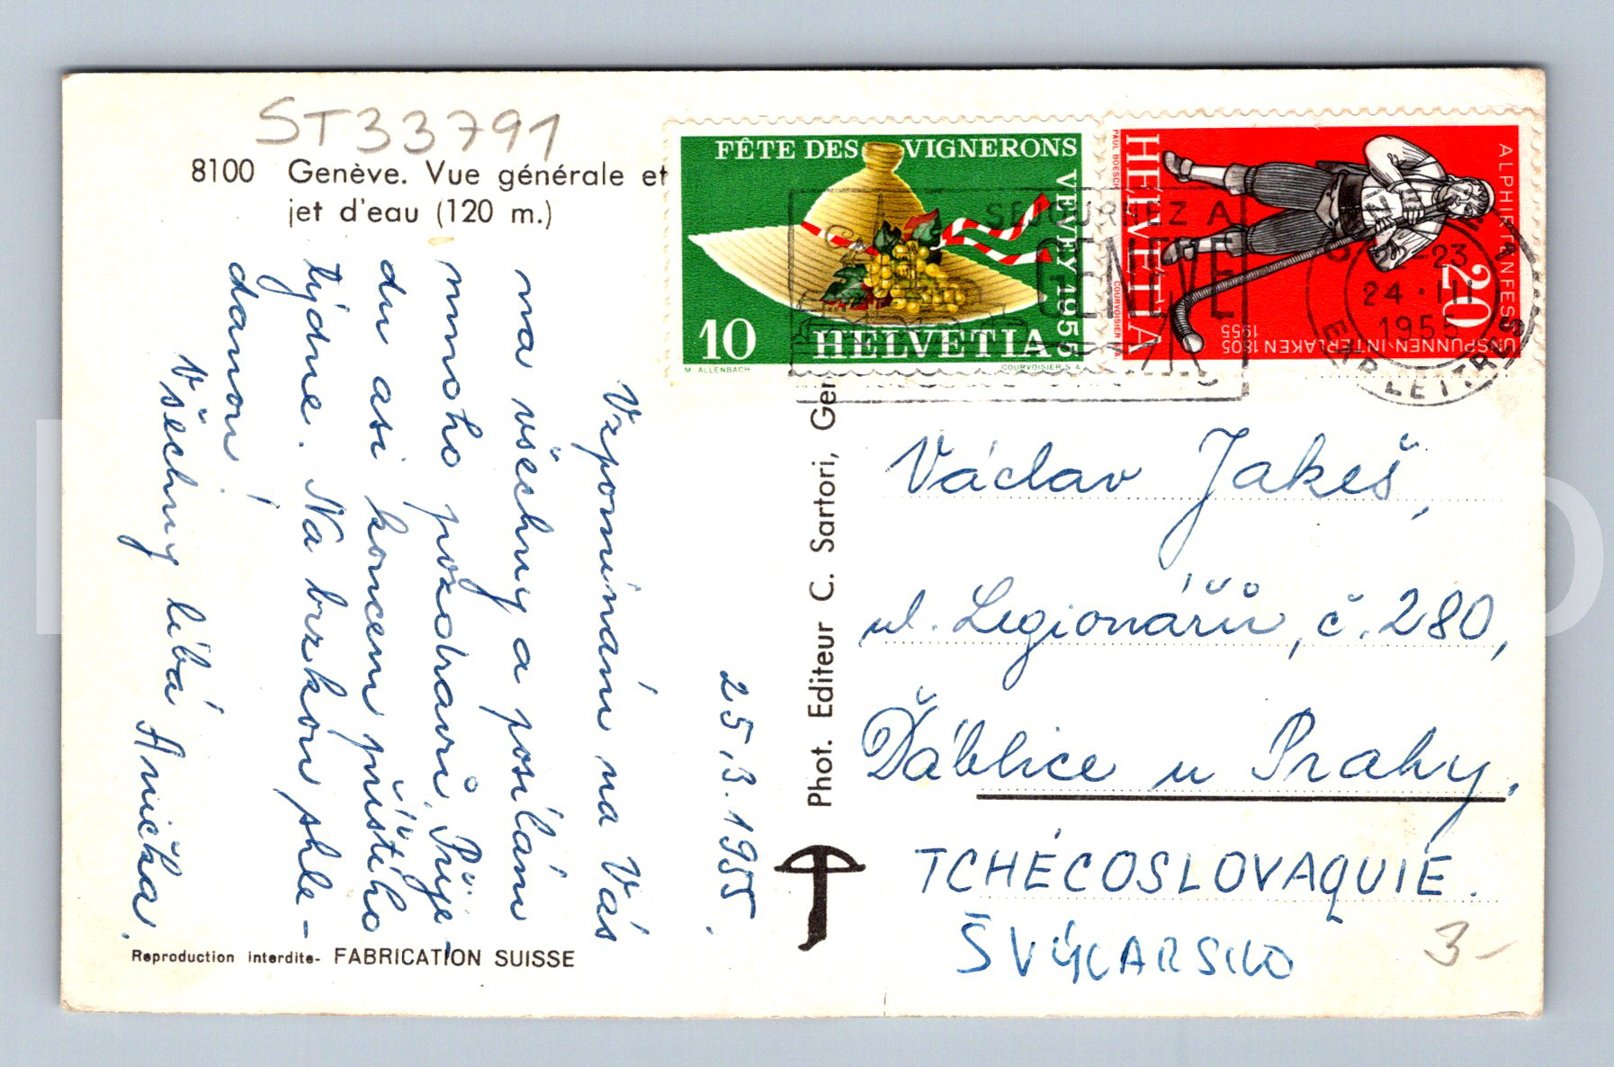 ST33791
8100 Genève. Vue générale et
jet d'eau (120 m.)
25.3.1955.
Vzpomínám na Vás
na všechny a posílám
mnoho pozdravů. Přije-
du asi koncem příštího
týdne. Na brzkou shle-
danou!
Všechny líbá Anička.
Reproduction interdite - FABRICATION SUISSE
Phot. Editeur C. Sartori, Gen
FÊTE DES VIGNERONS
VEVEY 1955
10 HELVETIA
M. ALLENBACH
COURVOISIER S.A.
HELVETIA
PAUL BOESCH
COURVOISIER S.A.
20
ALPHIRTENFEST
UNSPUNNEN-INTERLAKEN 1805
1955
SEJOURNEZ A
GENEVE
22-23
24.III
1955
EXP. LETTRES
Václav Jakeš,
ul. Legionářů, č. 280,
Ďáblice u Prahy.
TCHÉCOSLOVAQUIE.
ŠVÝCARSKO
3-